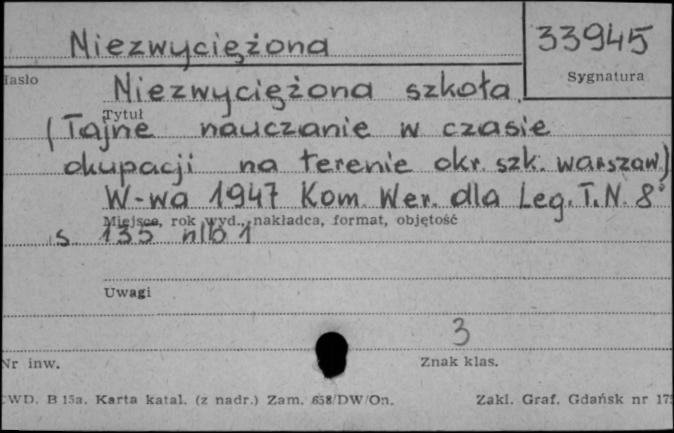 Niezwyciężona
33945
Hasło
Sygnatura
Niezwyciężona szkoła.
Tytuł
(Tajne nauczanie w czasie
okupacji na terenie okr. szk. warszaw.)
W-wa 1947 Kom. Wer. dla Leg. T.N. 8°
Miejsce, rok wyd., nakładca, format, objętość
s. 135 nlb 1
Uwagi
3
Nr inw.
Znak klas.
CWD. B 15a. Karta katal. (z nadr.) Zam. 658/DW/On.
Zakł. Graf. Gdańsk nr 175